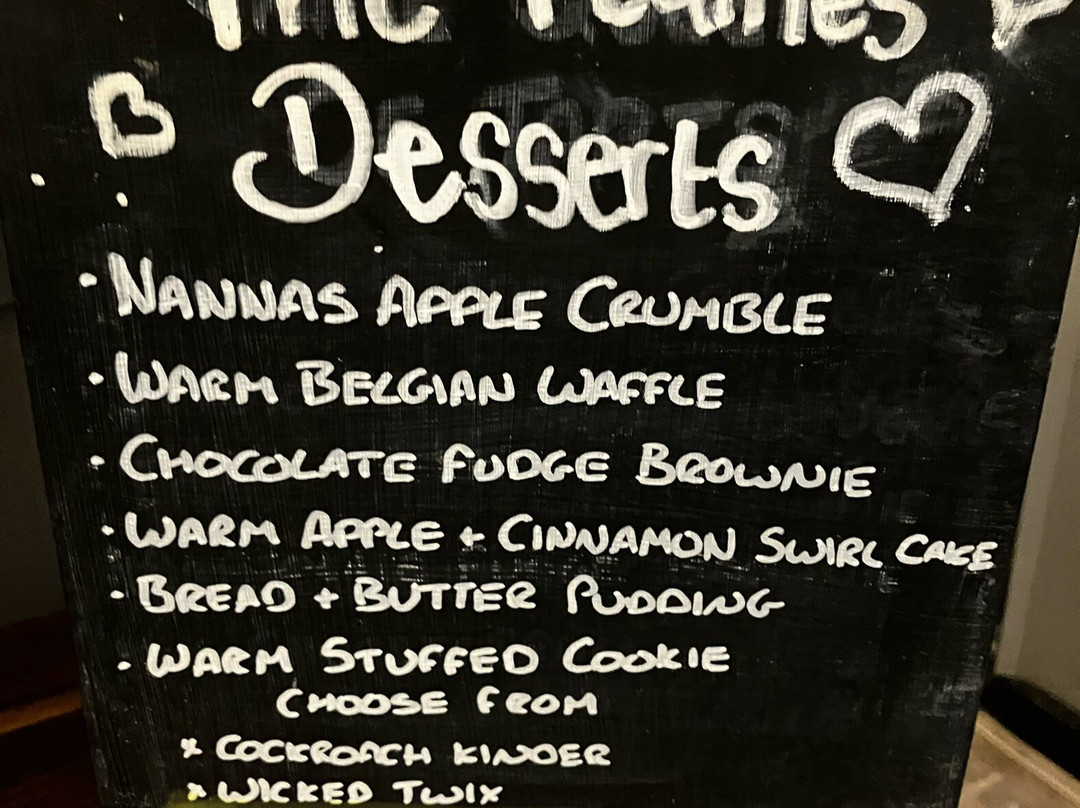 Desserts
• NANNAS APPLE CRUMBLE
• WARM BELGIAN WAFFLE
• CHOCOLATE FUDGE BROWNIE
• WARM APPLE + CINNAMON SWIRL CAKE
• BREAD + BUTTER PUDDING
• WARM STUFFED COOKIE
CHOOSE FROM
x COCKROACH KINDER
x WICKED TWIX